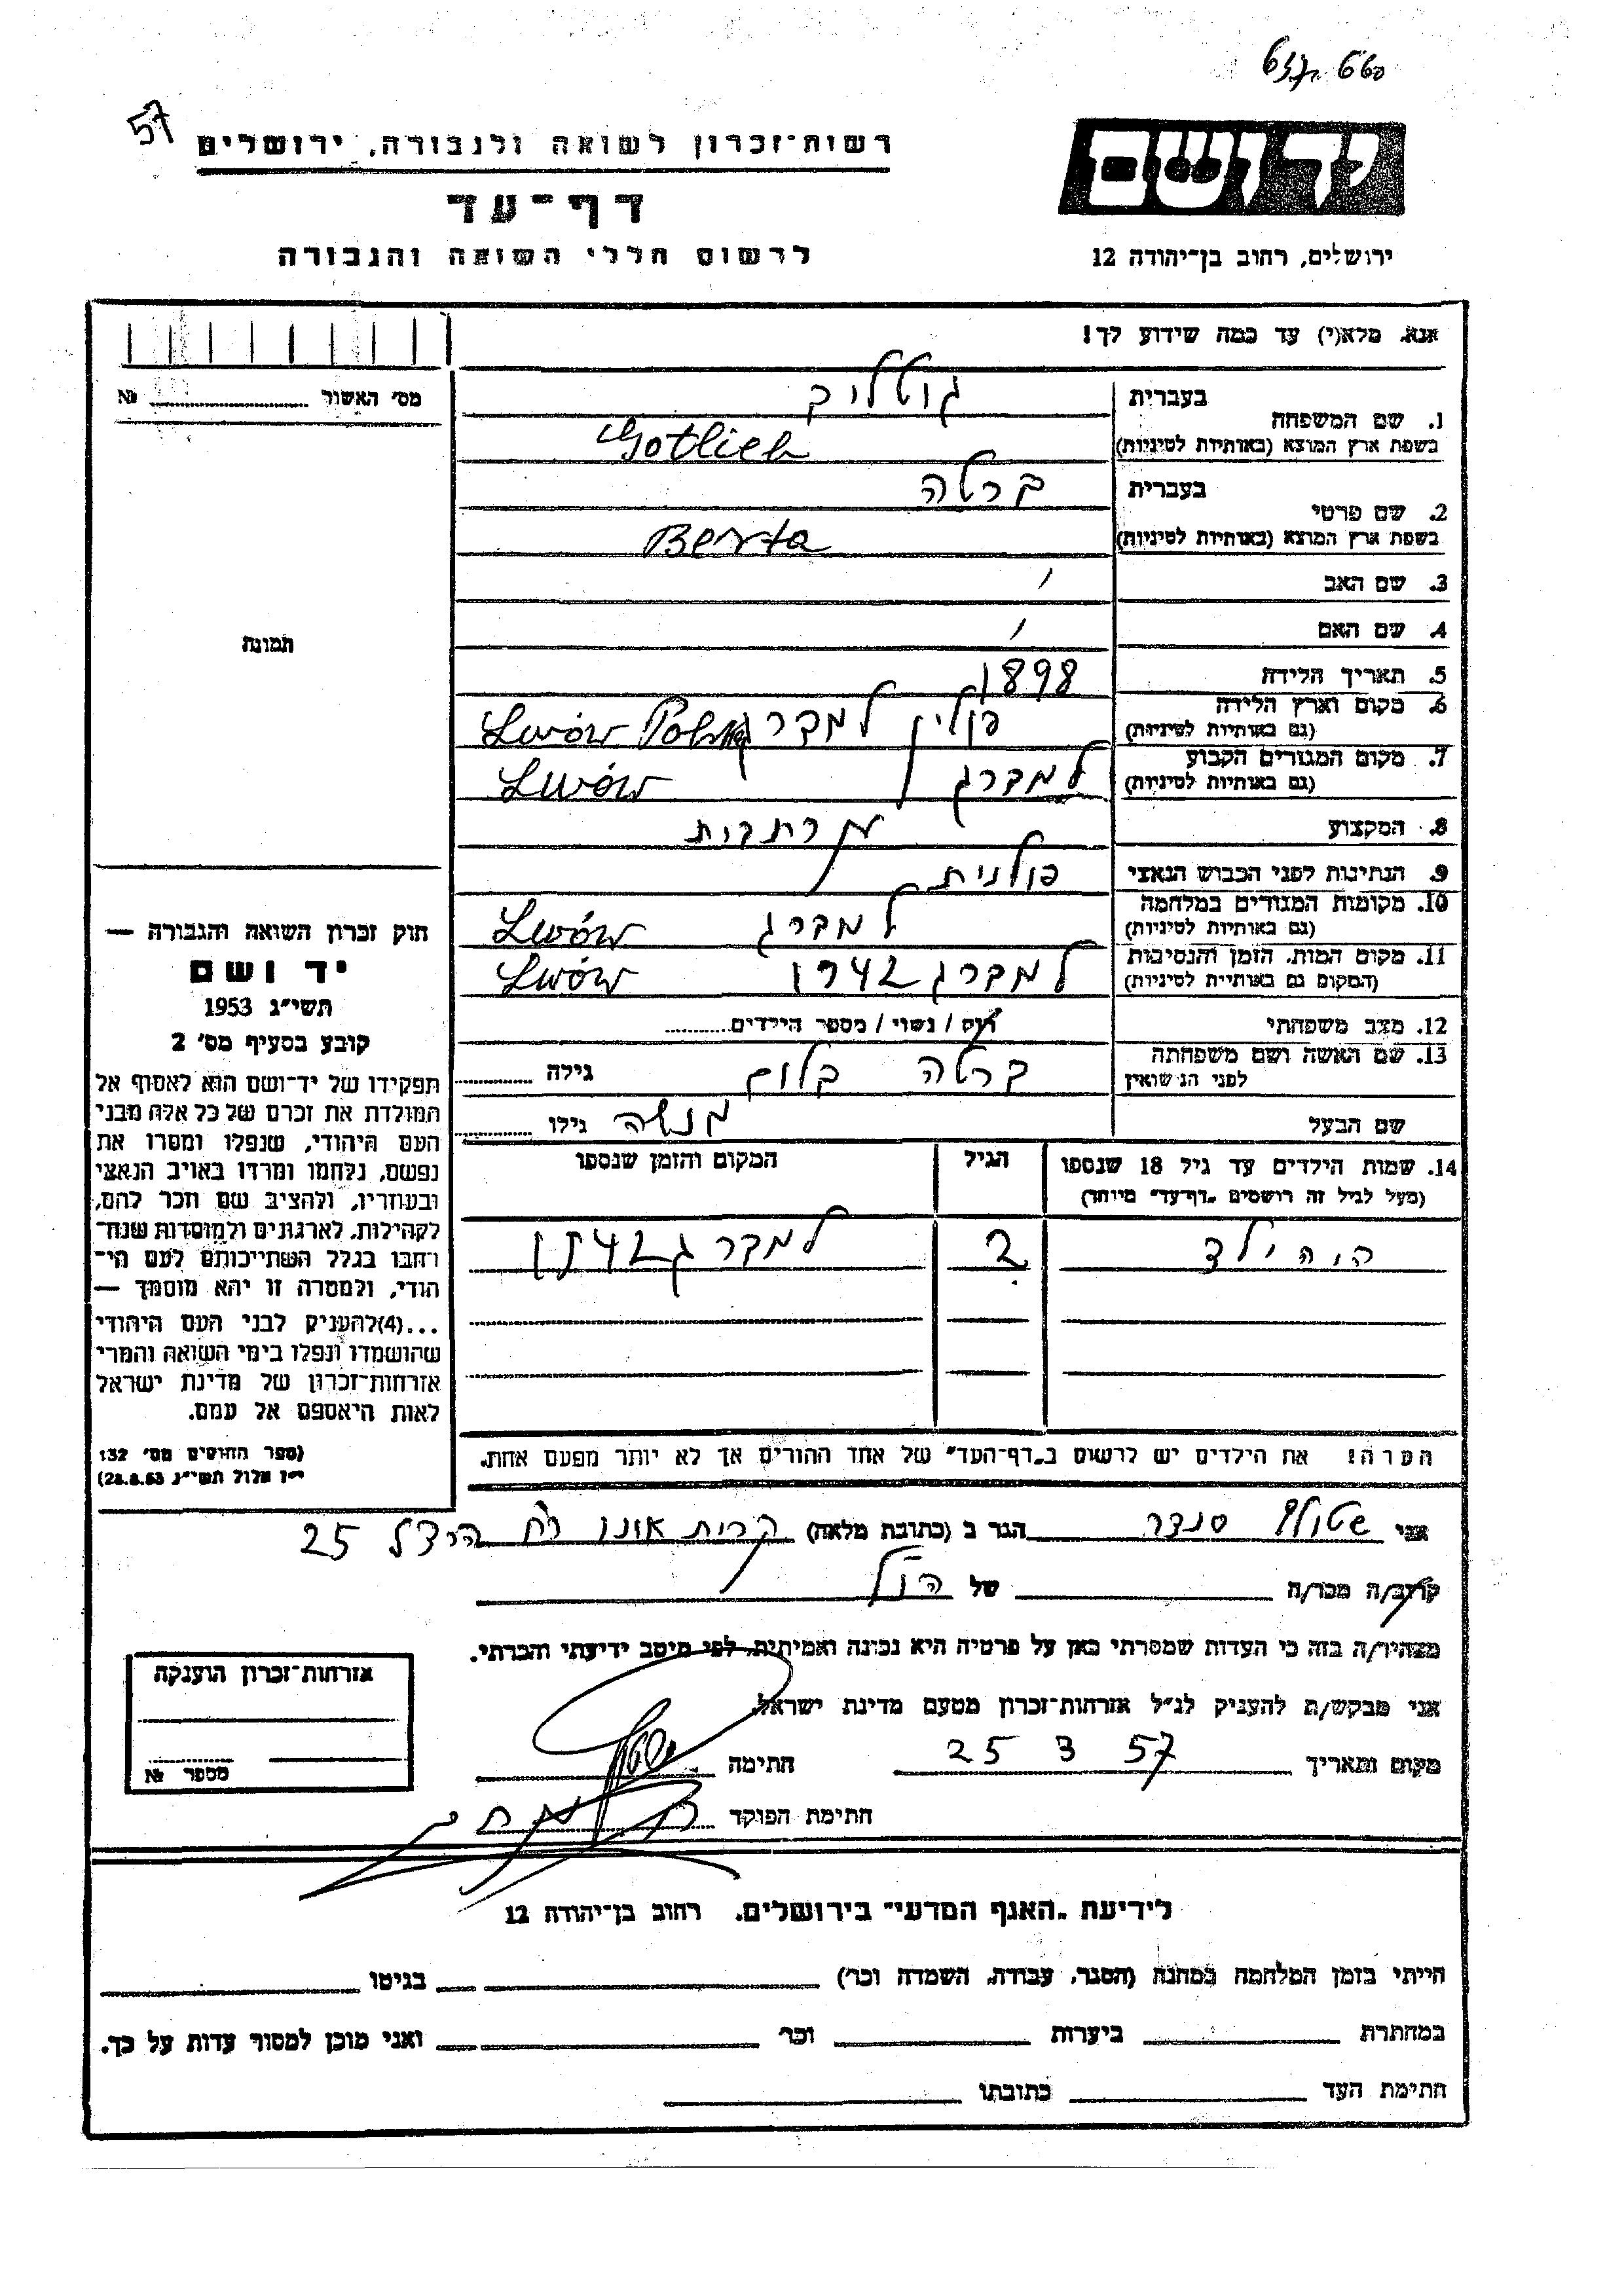 57
רשות־זכרון לשואה ולגבורה, ירושלים
דף־עד
לרשום חללי השואה והגבורה
יד ושם
ירושלים, רחוב בן־יהודה 12
אנא, מלא(י) עד כמה שידוע לך!
מס׳ האשור № 
תמונה
1. שם המשפחה
בעברית גוטליב
בשפת ארץ המוצא (באותיות לטיניות) Gotlieb
2. שם פרטי
בעברית ברטה
בשפת ארץ המוצא (באותיות לטיניות) Berta
3. שם האב
4. שם האם
5. תאריך הלידה 1898
6. מקום וארץ הלידה
(גם באותיות לטיניות) פולין למברג Lwów Polska
7. מקום המגורים הקבוע
(גם באותיות לטיניות) למברג Lwów
8. המקצוע
9. הנתינות לפני הכבוש הנאצי פולנית
10. מקומות המגורים במלחמה
(גם באותיות לטיניות) למברג Lwów
11. מקום המות, הזמן והנסיבות
(המקום גם באותיות לטיניות) למברג 1942 Lwów
12. מצב משפחתי רוק / נשוי / מספר הילדים
13. שם האשה ושם משפחתה
לפני הנישואין ברטה בלום גילה
שם הבעל מנשה גילו
14. שמות הילדים עד גיל 18 שנספו
(מעל לגיל זה רושמים „דף־עד״ מיוחד)
הגיל
המקום והזמן שנספו
היה ילד 2 למברג 1942
הערה! את הילדים יש לרשום ב„דף־העד״ של אחד ההורים אך לא יותר מפעם אחת.
חוק זכרון השואה והגבורה —
יד ושם
תשי״ג 1953
קובע בסעיף מס׳ 2
תפקידו של יד־ושם הוא לאסוף אל
המולדת את זכרם של כל אלה מבני
העם היהודי, שנפלו ומסרו את
נפשם, נלחמו ומרדו באויב הנאצי
ובעוזריו, ולהציב שם וזכר להם,
לקהילות, לארגונים ולמוסדות שנח־
רבו בגלל השתייכותם לעם הי־
הודי, ולמטרה זו יהא מוסמך —
...(4)להעניק לבני העם היהודי
שהושמדו ונפלו בימי השואה והמרי
אזרחות־זכרון של מדינת ישראל
לאות היאספם אל עמם.
(ספר החוקים מס׳ 132
י״ז אלול תשי״ג 28.8.53)
אני שטולף סנדר הגר ב (כתובת מלאה) קרית אונו רח הרצל 25
קרוב/ה מכר/ה של הנ״ל
מצהיר/ה בזה כי העדות שמסרתי כאן על פרטיה היא נכונה ואמיתית, לפי מיטב ידיעתי והכרתי.
אני מבקש/ת להעניק לנ״ל אזרחות־זכרון מטעם מדינת ישראל.
מקום ותאריך 25 3 57 חתימה
חתימת הפוקד
אזרחות־זכרון הוענקה
מספר №
לידיעת „האגף המדעי״ בירושלים. רחוב בן־יהודה 12
הייתי בזמן המלחמה במחנה (הסגר, עבודה, השמדה וכו׳) בגיטו
במחתרת ביערות וכו׳ ואני מוכן למסור עדות על כך.
חתימת העד כתובתו